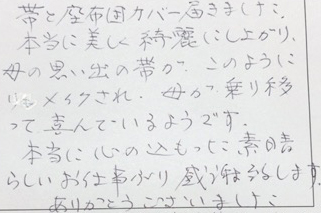 帯と座布団カバー届きました。
本当に美しく綺麗に仕上がり、
母の思い出の帯が、このように
リメイクされ、母が乗り移
って喜んでいるようです。
本当に心の込もった素晴
らしいお仕事ぶり感謝致します。
ありがとうございました